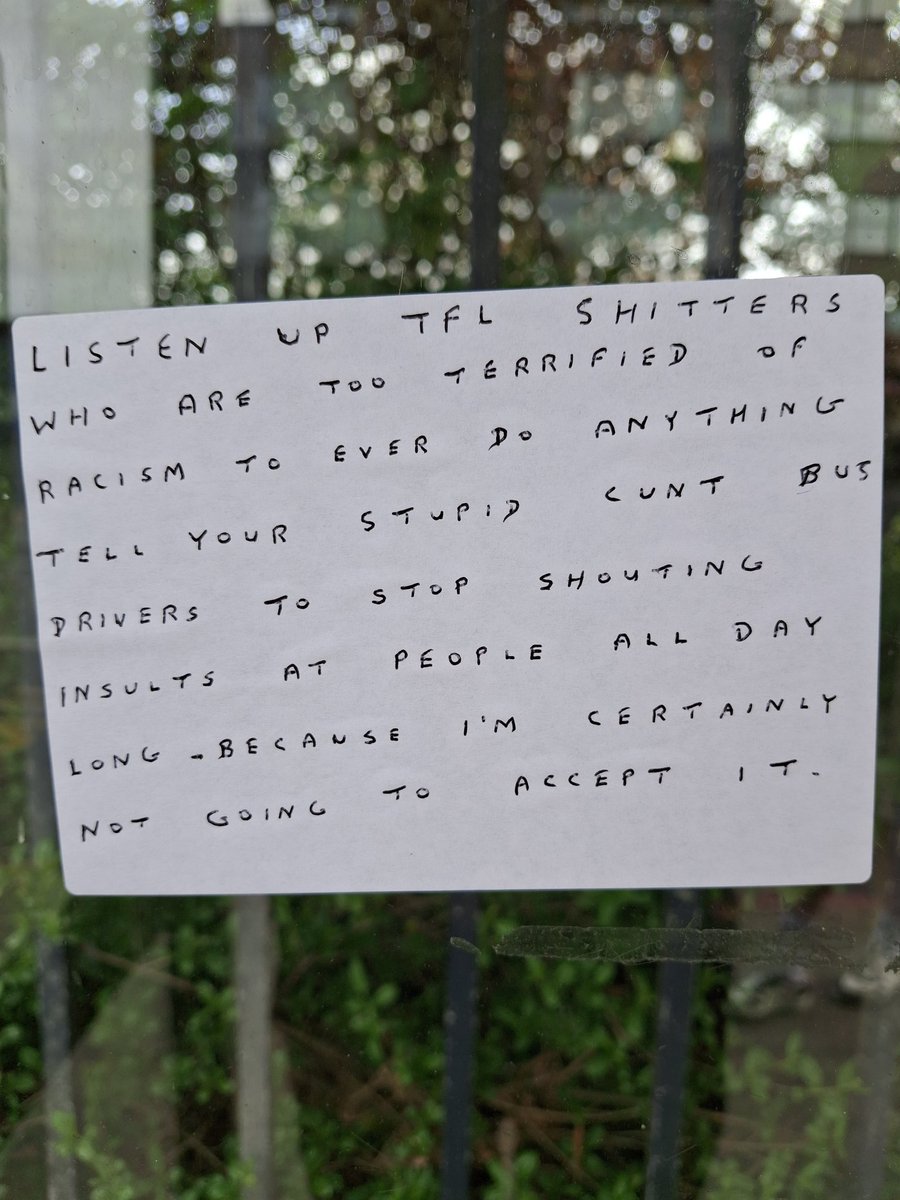 LISTEN UP TFL SHITTERS
WHO ARE TOO TERRIFIED OF
RACISM TO EVER DO ANYTHING
TELL YOUR STUPID CUNT BUS
DRIVERS TO STOP SHOUTING
INSULTS AT PEOPLE ALL DAY
LONG - BECAUSE I'M CERTAINLY
NOT GOING TO ACCEPT IT.